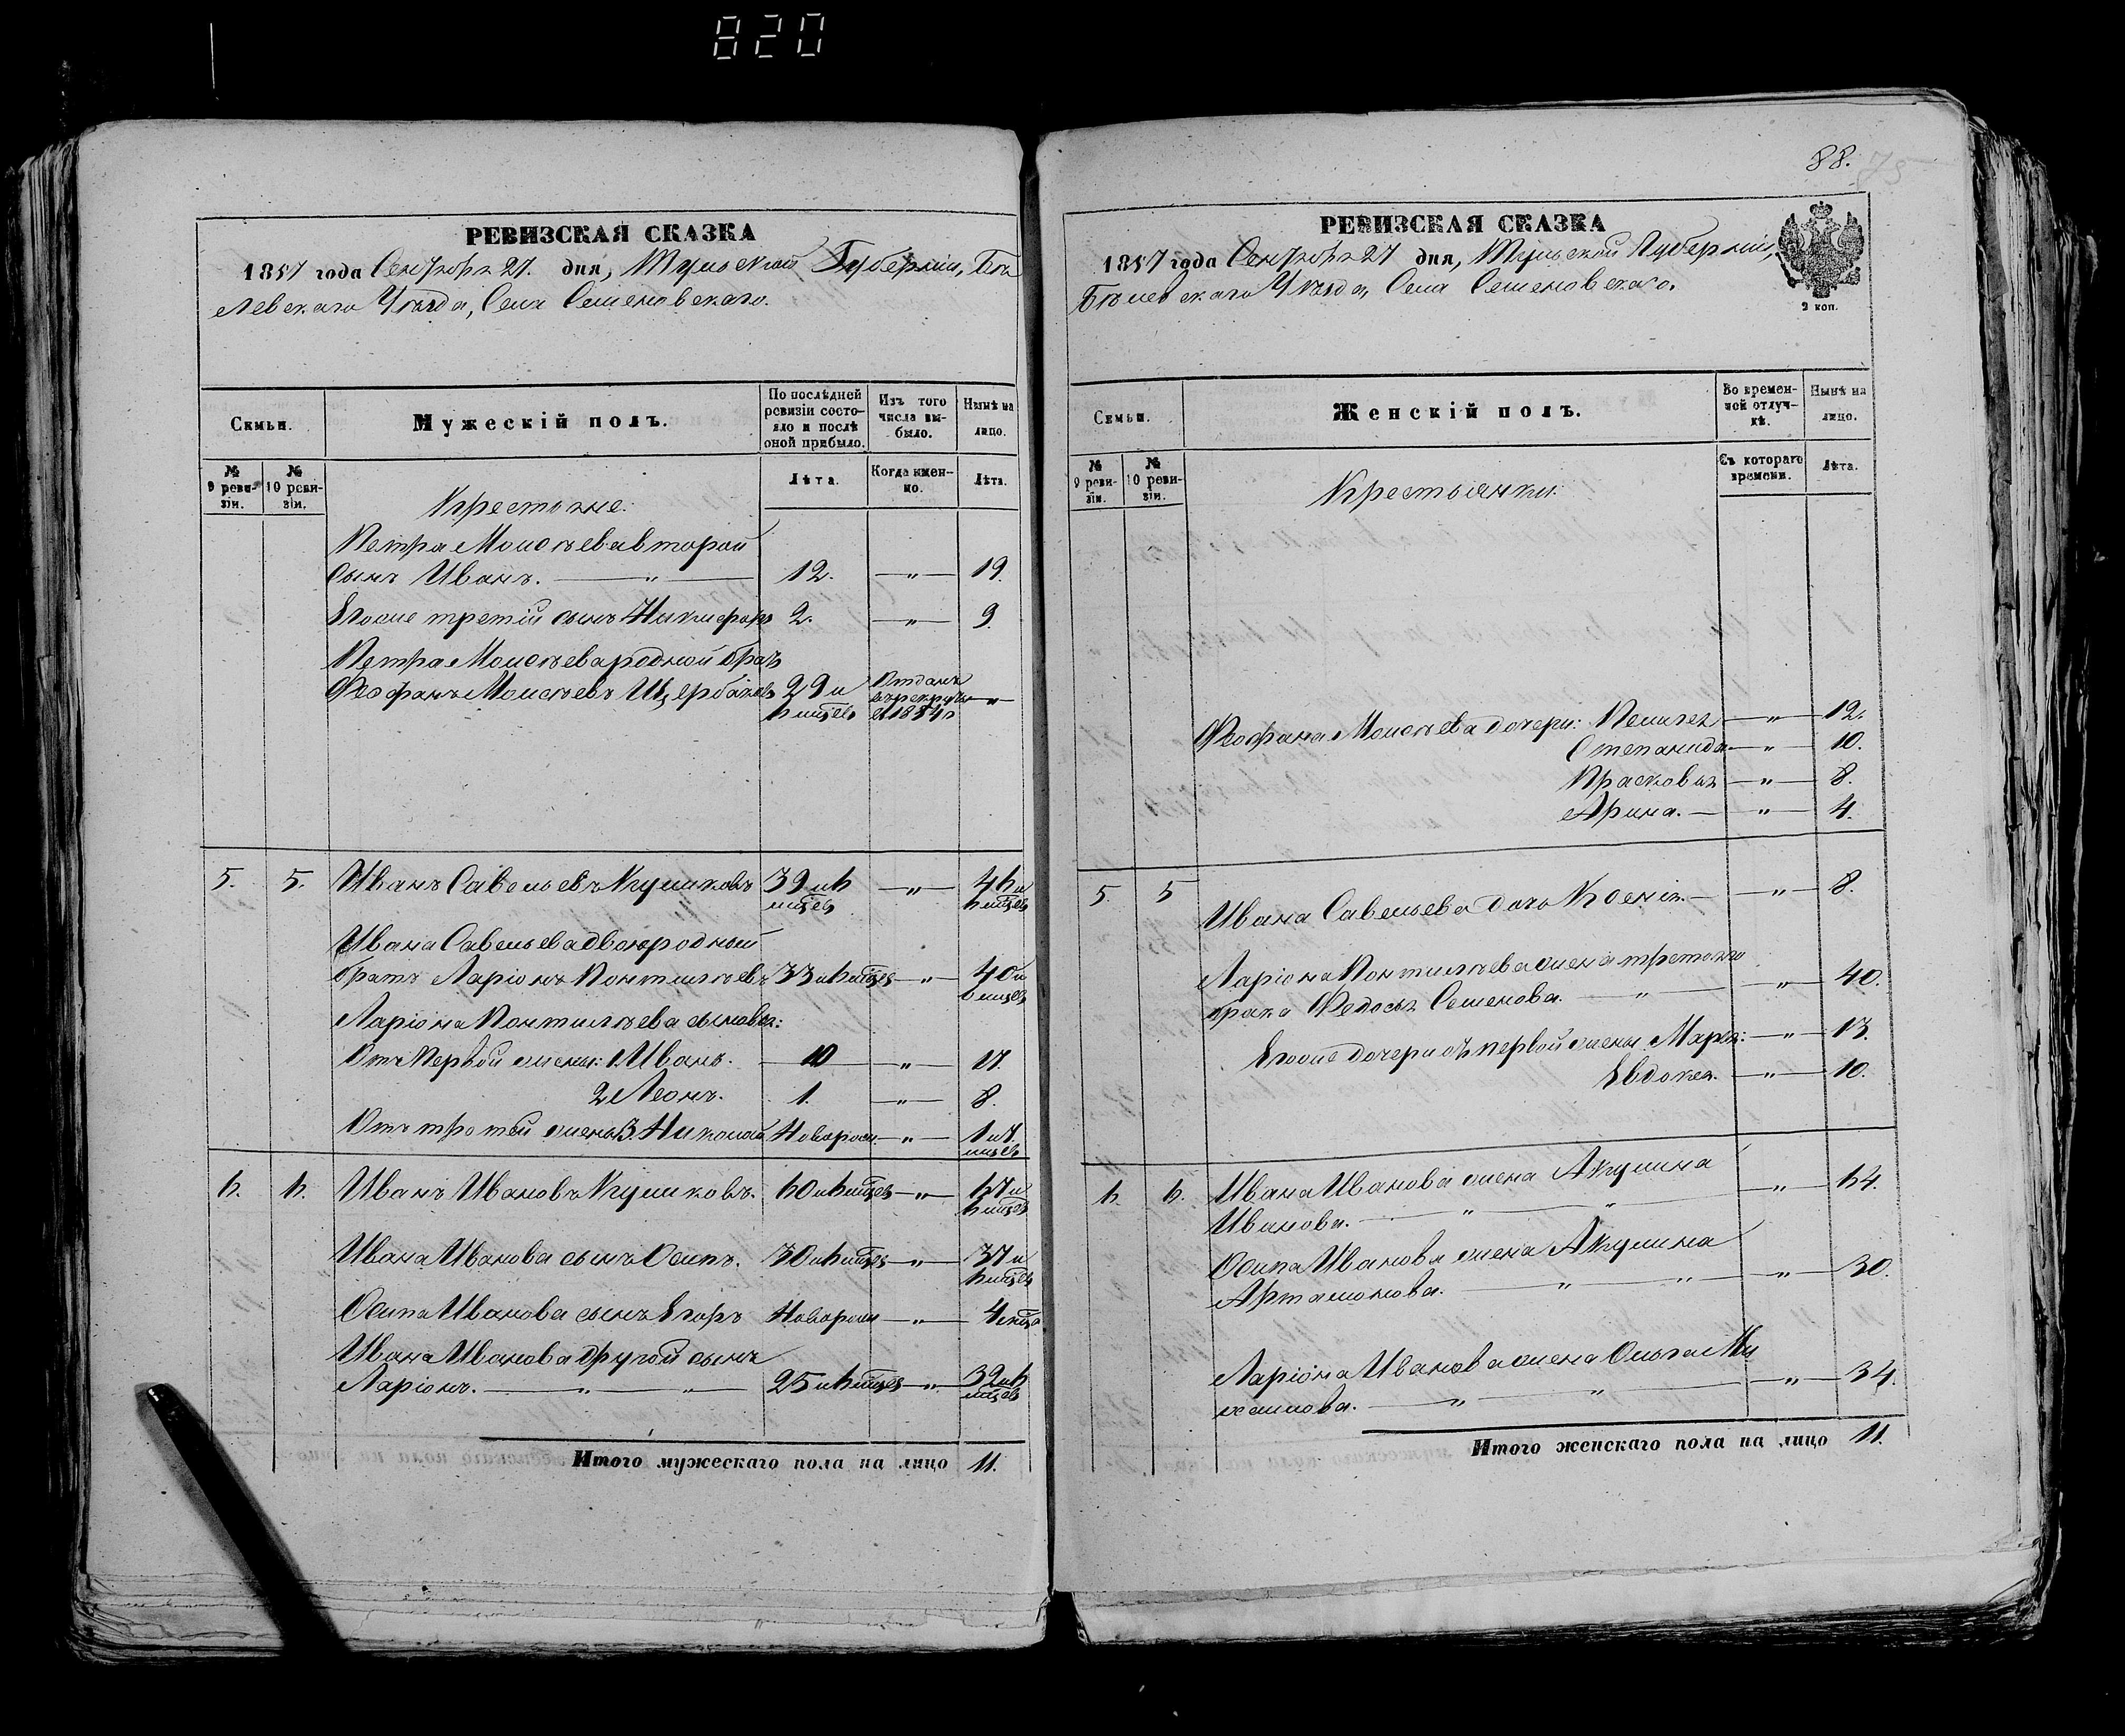 820
РЕВИЗСКАЯ СКАЗКА
1857 года Сентября 27. дня, Тульской Губерніи, Бѣ
левскаго Уѣзда, Села Семеновскаго.
Семьи.
Мужескій полъ.
По послѣдней
ревизіи состо-
яло и послѣ
оной прибыло.
Изъ того
числа вы-
было.
Нынѣ на
лицо.
№
9 реви-
зіи.
№
10 реви-
зіи.
Лѣта.
Когда имен-
но.
Лѣта.
Крестьяне.
Петра Моисѣева второй
сынъ Иванъ. — " — 12. — " — 19.
Егоже третій сынъ Никифоръ 2. — " — 9.
Петра Моисѣева родной братъ
Феофанъ Моисѣевъ Щербаковъ 29 и
6 мцевъ
Отданъ
въ рекруты
в 1854 г
"
5. 5. Иванъ Савельевъ Кушковъ 39 и 6
мцевъ — " — 46 и
6 мцевъ
Ивана Савельева двоюродный
братъ Ларіонъ Понтилѣевъ 33 и 6 мцев — " — 40 и
6 мцев
Ларіона Понтилѣева сыновья:
Отъ первой жены: 1 Иванъ. — 10 — " — 17.
2 Леонъ. 1. — " — 8.
Отъ третей жены 3. Николай Новорож. — " — 1 и 7.
мцев
6. 6. Иванъ Ивановъ Кушковъ. 60 и 6 мцев — " — 67 и
6 мцев
Ивана Иванова сынъ Осипъ. 30 и 6 мцев — " — 37 и
6 мцев
Осипа Иванова сынъ Егоръ Новорож — " — 4 мца
Ивана Иванова другой сынъ
Ларіонъ. — " — " — 25 и 6 мцев — " — 32 и 6
мцев
Итого мужескаго пола на лицо 11.
88.
75
РЕВИЗСКАЯ СКАЗКА
1857 года Сентября 27 дня, Тульской Губерніи,
Бѣлевскаго Уѣзда, Села Семеновскаго.
2 коп.
Семьи.
Женскій полъ.
Во времен-
ной отлуч-
кѣ.
Нынѣ на
лицо.
№
9 реви-
зіи.
№
10 реви-
зіи.
Съ котораго
времени.
Лѣта.
Крестьянки.
Феофана Моисѣева дочери: Пелагея — " — 12.
Степанида — " — 10.
Прасковья — " — 8.
Арина. — " — 4.
5. 5 Ивана Савельева дочь Ксенія. — " — 8.
Ларіона Понтилѣева жена третьяго
брака Федосья Семенова. — " — " — 40.
Егоже дочери отъ первой жены Марья: — " — 13.
Евдокея. — " — 10.
6. 6. Ивана Иванова жена Акулина
Иванова. — " — " — " — 64.
Осипа Иванова жена Акулина
Артамонова. — " — " — " — 30.
Ларіона Иванова жена Ольга Ми
хаилова. — " — " — " — 34.
Итого женскаго пола на лицо 11.